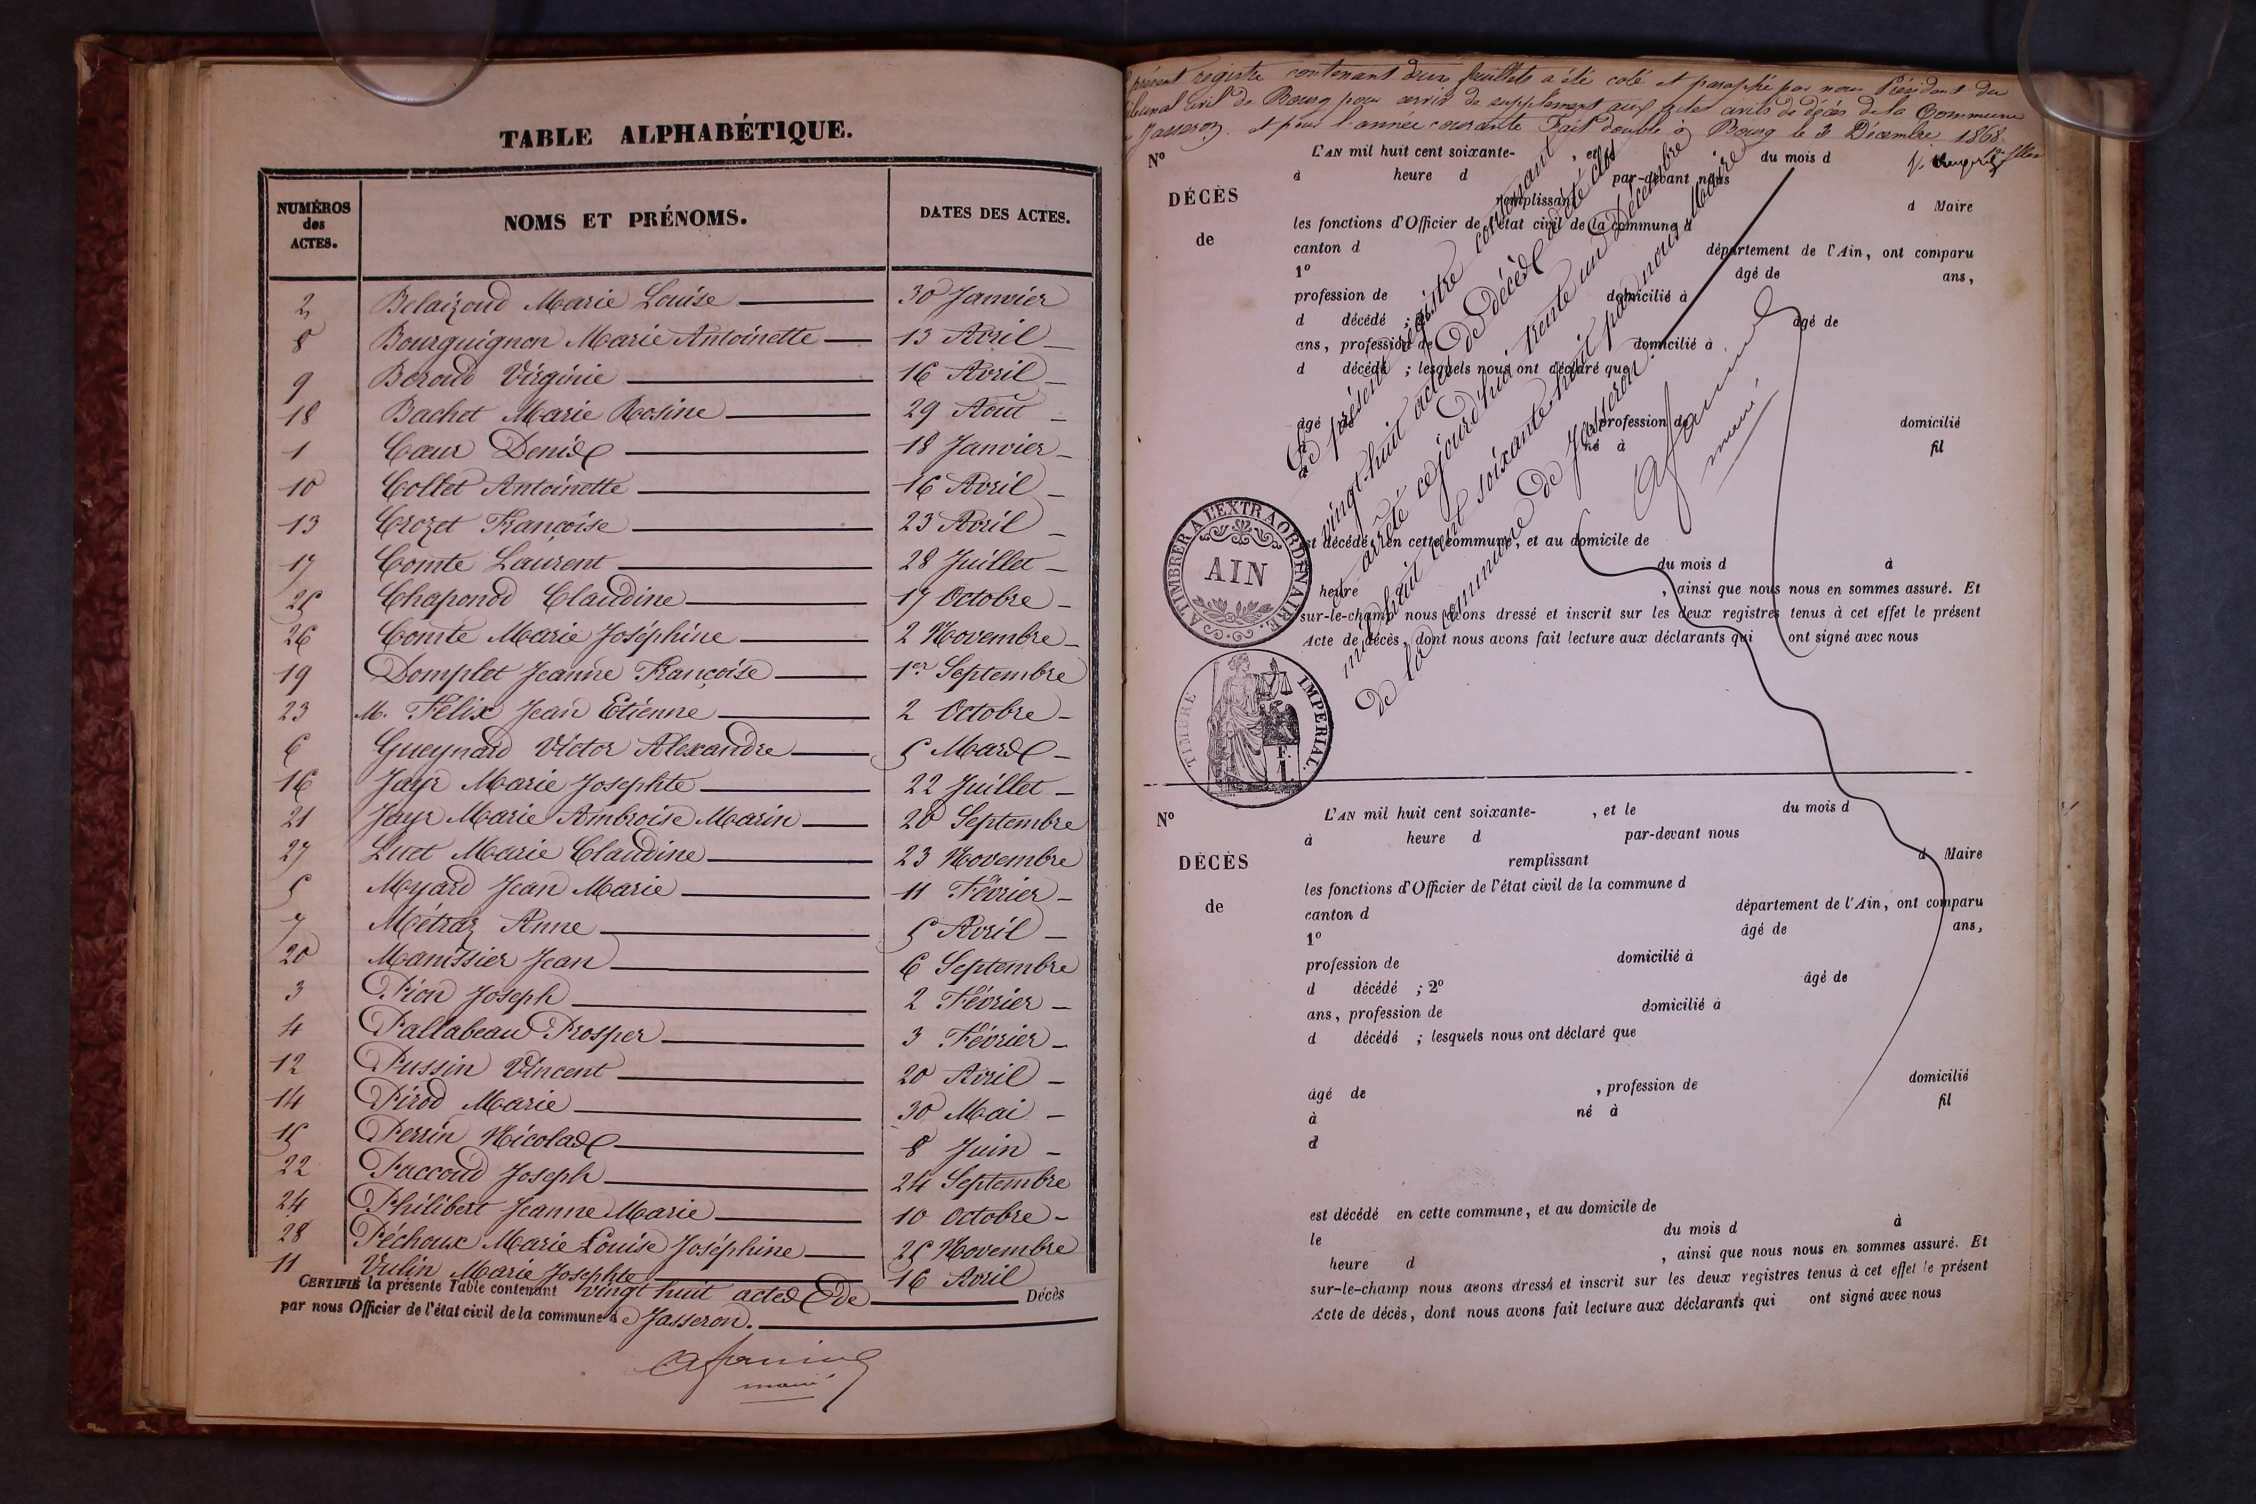 TABLE ALPHABÉTIQUE.
NUMÉROS des ACTES. NOMS ET PRÉNOMS. DATES DES ACTES.
2 Belaizoud Marie Louise 30 Janvier
8 Bourguignon Marie Antoinette 13 Avril
9 Beroud Virginie 16 Avril
18 Bachet Marie Rosine 29 Août
1 Cœur Denis 18 Janvier
10 Collet Antoinette 16 Avril
13 Crozet Françoise 23 Avril
17 Comte Laurent 28 Juillet
25 Chapoud Claudine 17 Octobre
26 Comte Marie Joséphine 2 Novembre
19 Domplet Jeanne Françoise 1er Septembre
23 M. Félix Jean Etienne 2 Octobre
6 Gueynard Victor Alexandre 5 Mars
16 Jayr Marie Josephte 22 Juillet
21 Jayr Marie Ambroise Marin 20 Septembre
27 Luet Marie Claudine 23 Novembre
5 Myard Jean Marie 11 Février
7 Métraz Anne 5 Avril
20 Manissier Jean 6 Septembre
3 Pion Joseph 2 Février
4 Pallabeau Prosper 3 Février
12 Pussin Vincent 20 Avril
14 Pirod Marie 30 Mai
15 Perrin Nicolas 8 Juin
22 Paccoud Joseph 24 Septembre
24 Philibert Jeanne Marie 10 Octobre
28 Péchoux Marie Louise Joséphine 25 Novembre
11 Vulin Marie Josephte 16 Avril
CERTIFIÉ la présente Table contenant vingt huit actes de Décès
par nous Officier de l'état civil de la commune de Jasseron.
maire
présent registre contenant deux feuillets a été coté et paraphé par nous Président du
tribunal civil de Bourg pour servir de supplément aux actes civils de décès de la Commune
Jasseron et pour l'année courante Fait double à Bourg le 3 Décembre 1868.
N° L'AN mil huit cent soixante- , et le du mois d
à heure d par-devant nous
DÉCÈS remplissant d Maire
les fonctions d'Officier de l'état civil de la commune d
de canton d département de l'Ain, ont comparu
1° âgé de ans,
profession de domicilié à
d décédé ; 2° âgé de
ans, profession de domicilié à
d décédé ; lesquels nous ont déclaré que
âgé de , profession de domicilié
né à fil
Le présent registre contenant
vingt-huit actes de décès a été clos
et arrêté ce jourd'hui trente un Décembre
mil huit cent soixante-huit par nous Maire
de la commune de Jasseron.
maire
A TIMBRER A L'EXTRAORDINAIRE.
AIN
est décédé en cette commune, et au domicile de
du mois d à
heure , ainsi que nous nous en sommes assuré. Et
sur-le-champ nous avons dressé et inscrit sur les deux registres tenus à cet effet le présent
Acte de décès, dont nous avons fait lecture aux déclarants qui ont signé avec nous
TIMBRE IMPERIAL.
F. 1.
N° L'AN mil huit cent soixante- , et le du mois d
à heure d par-devant nous
DÉCÈS remplissant d Maire
les fonctions d'Officier de l'état civil de la commune d
de canton d département de l'Ain, ont comparu
1° âgé de ans,
profession de domicilié à
d décédé ; 2° âgé de
ans, profession de domicilié à
d décédé ; lesquels nous ont déclaré que
âgé de , profession de domicilié
à né à fil
d
est décédé en cette commune, et au domicile de
le du mois d à
heure d , ainsi que nous nous en sommes assuré. Et
sur-le-champ nous avons dressé et inscrit sur les deux registres tenus à cet effet le présent
Acte de décès, dont nous avons fait lecture aux déclarants qui ont signé avec nous